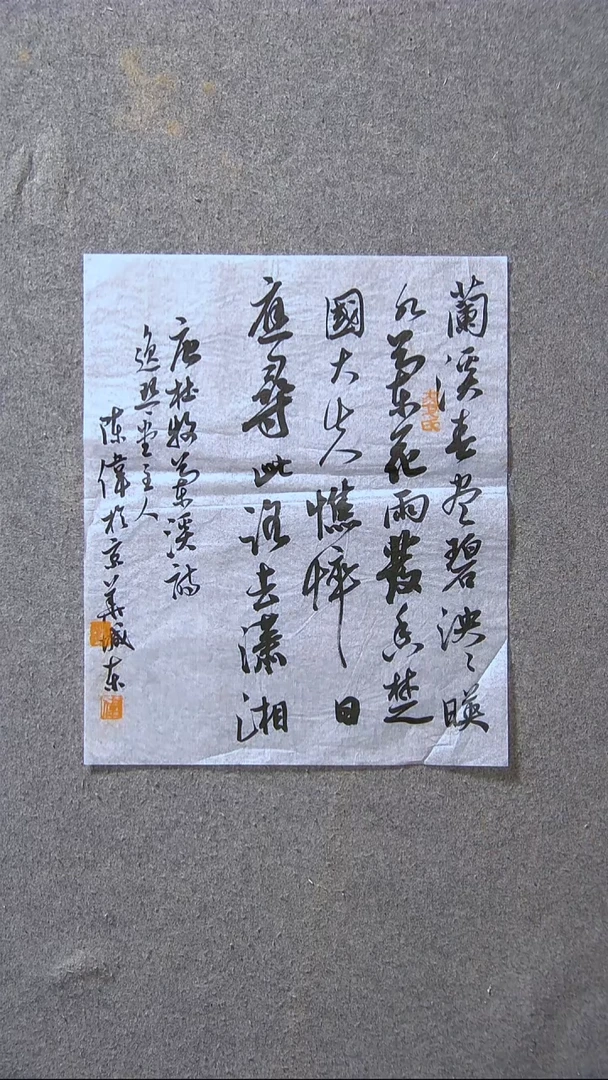 蘭溪春尽碧泱〻暎
水蘭花雨發香楚
國大夫憔悴日
應尋此路去瀟湘
唐杜牧蘭溪詩
逸堂主人
陳偉於京華城东